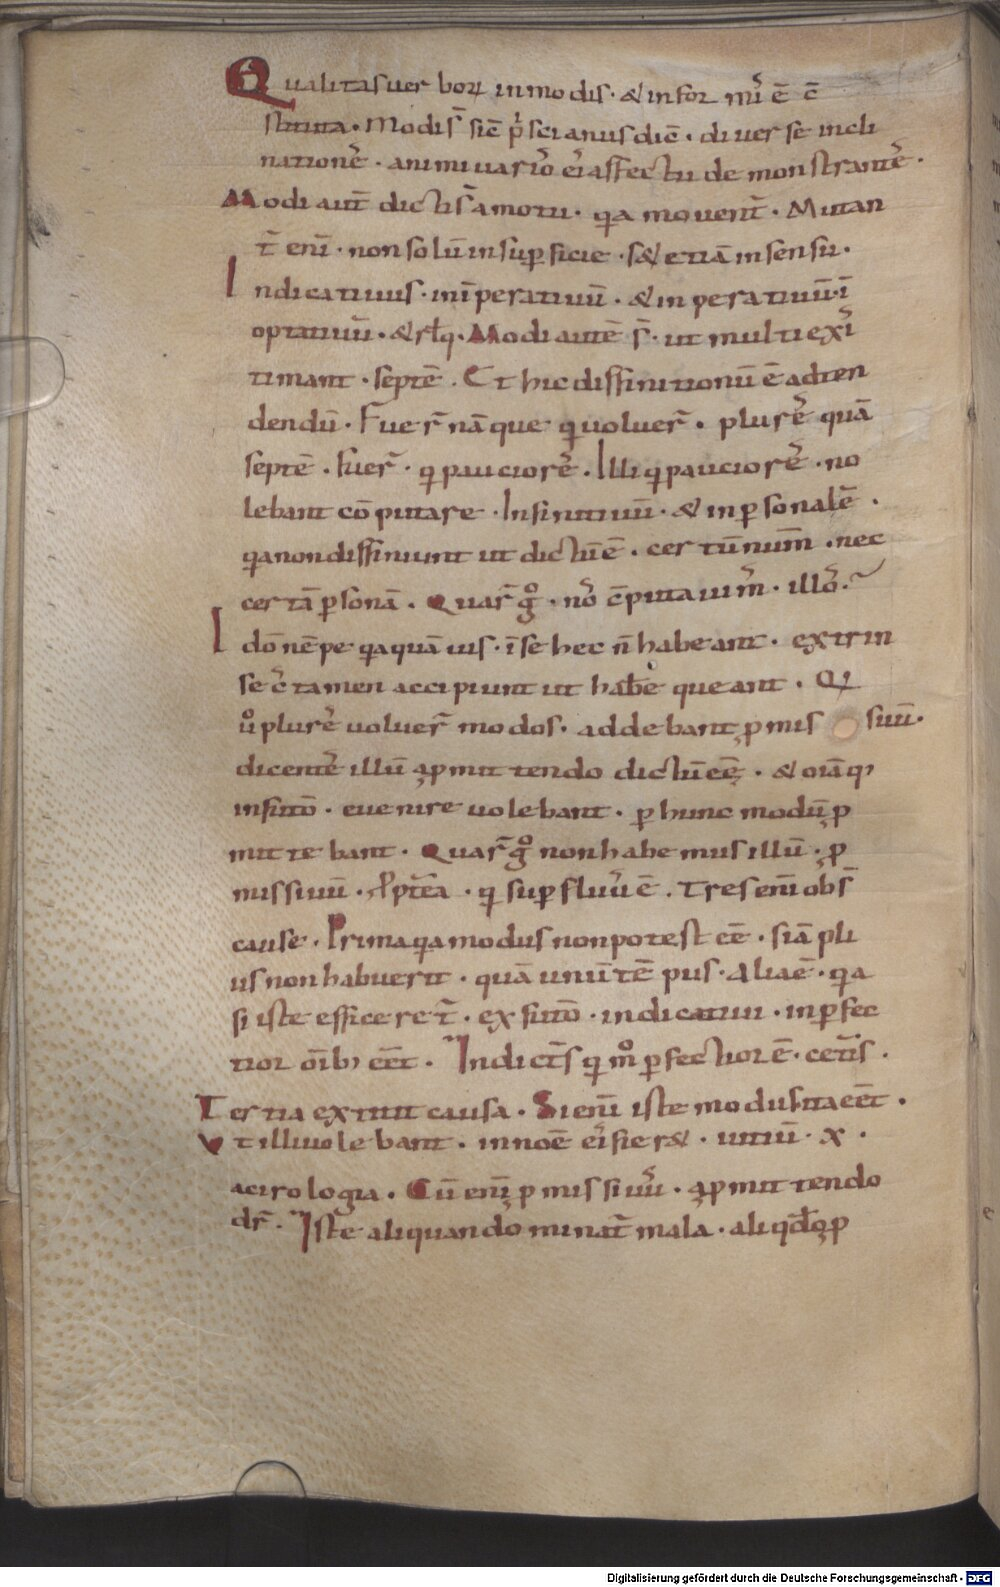 Qualitas uerborꝝ in modis · & in for mĩ ē c̄
stituta · Modi s̄ sic̄ p̓scianus dic̄ · diuerse incli
nationes̓ · animi uario̓ ei̓ affectu demonstrantes̓ ·
Modi aut̄ dicti s̄ a motu · qa mouent̄ · Mutan
t̄ eni̓ · non solū in suꝑficie · s& etiā in sensu ·
Indicatiuus · in īperatiuū · & inperatiuus̓ ī
optatiuū · & rłq · Modi autē s̄ · ut multi exi̓
timant · septē · Et hic diffinitionū ē adten
dendū · Fuer̄ nāque qi uoluer̄ · plures̓ quā
septē · fuer̄ · qi pauciores̓ · Illi qi pauciores̓ · no
lebant cōputare · Infinitiuū · & inꝑsonalē ·
qa non diffiniunt ut dictū ē · certū num̄ · nec
certā ꝑsonā · Quar̄ gͦ · no̓ c̄putauim̓ · illo̓ ·
Idō nēpe qa quāuis · ī se hec n̄ habeant · extrin
sec̓ tamen accipiunt ut habēe queant · Qi
uͦ plures̓ uoluer̄ modos · addebant ꝓmis siuū ·
dicentes̓ illū a ꝓmittendo dictū eē · & oīa q᷒
infinitō · euenire uolebant · ꝑ hunc modū ꝓ
mittebant · Quar̄ gͦ non habemus illū · ꝓ
missiuū · s̓ ꝓptēa · qi suꝑfluu̓ ē · Tres eni̓ obs̄
cause · Prima qa modus non potest eē · si ā pli
us non habuerit · quā unū tē pus · Alia ē · qa
si iste efficeret̄ · ex finitō · indicatiui · inꝑfec
tior oīb᷒ eēt · Indict̄s qi m̊ ꝑfectior ē · cet̄is ·
Tertia extitit causa · Si eni̓ iste modus ita eēt ·
Vt illi uolebant · in noē ei̓ fier& · uitiū · x ·
acirologia · Cū eni̓ ꝓmissiuu̓ · a ꝓmittendo
dr̄ · Iste aliquando minat̄ mala · aliqđo ꝓ
Digitalisierung gefördert durch die Deutsche Forschungsgemeinschaft - DFG